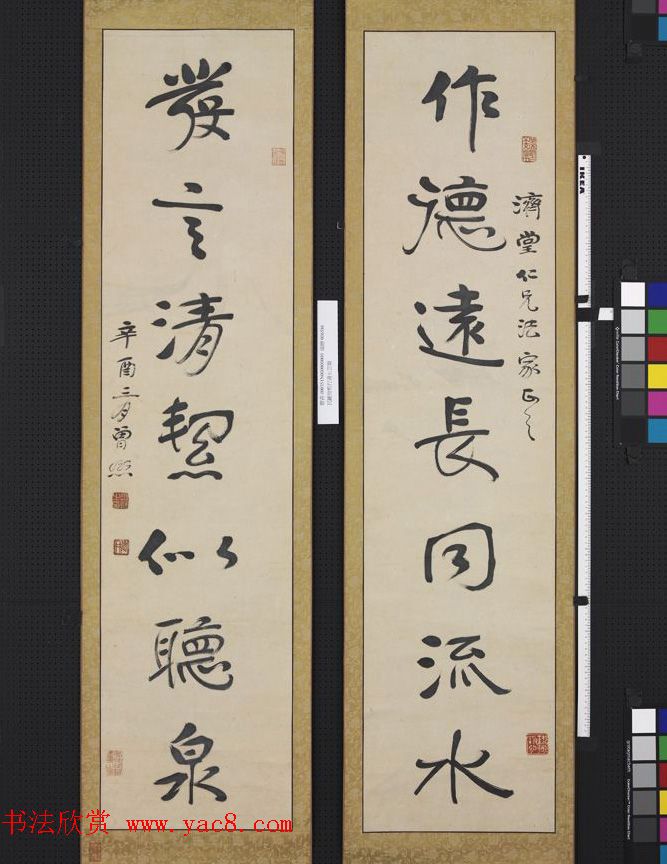 濟堂仁兄法家正之
作德遠長同流水
發言清絜似聽泉
辛酉二月曾熙
IKEA
书法欣赏 www.yac8.com